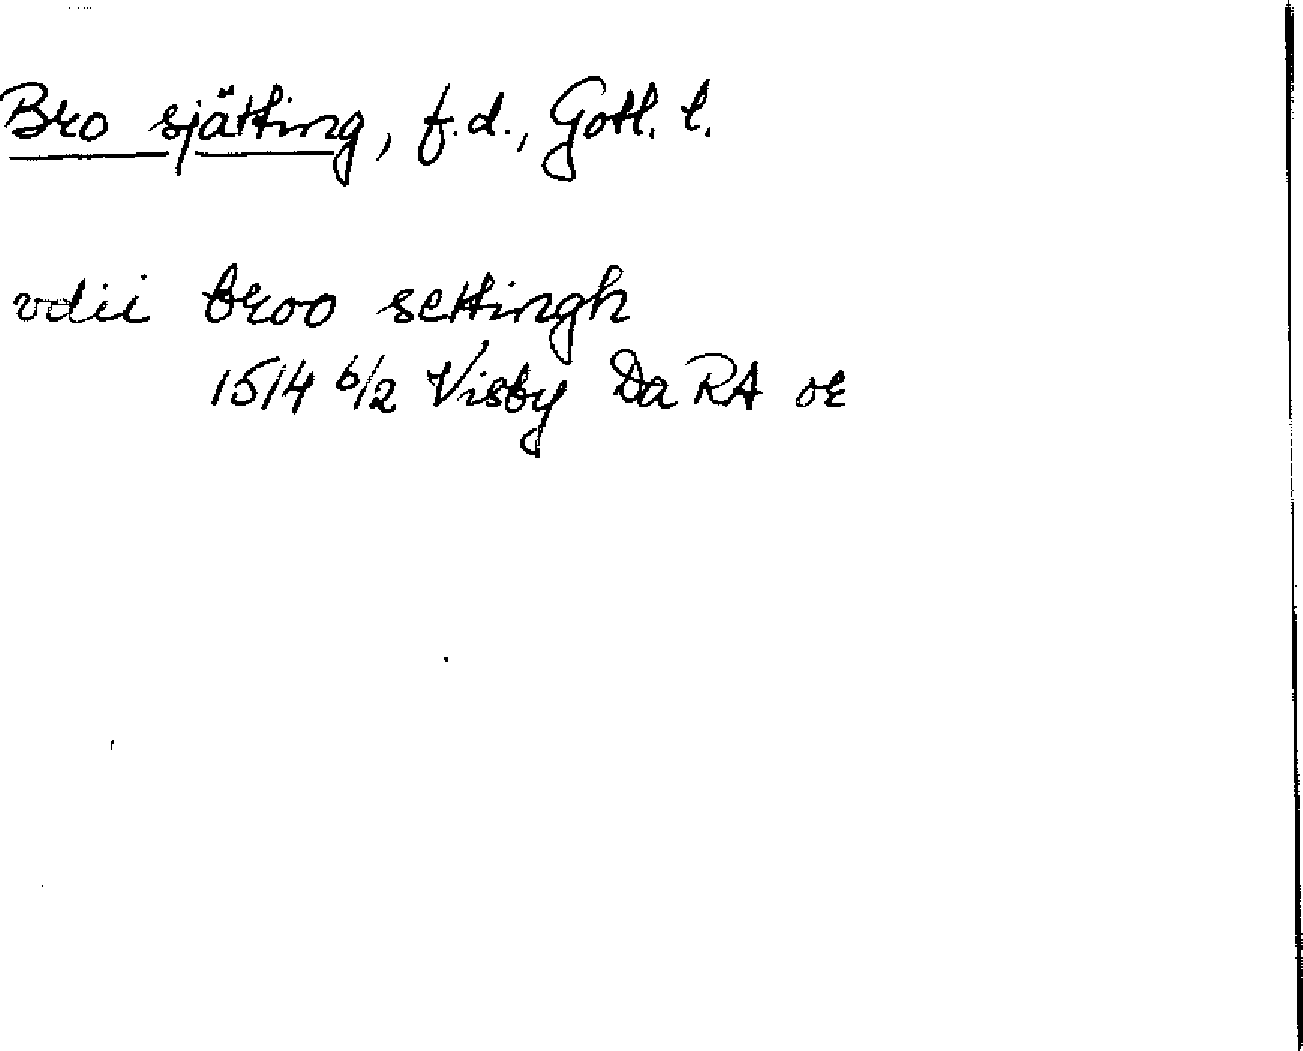 Bro sjätting, f.d., Gotl. l.
vdii broo settingh
1514 6/2 Visby Da RA or